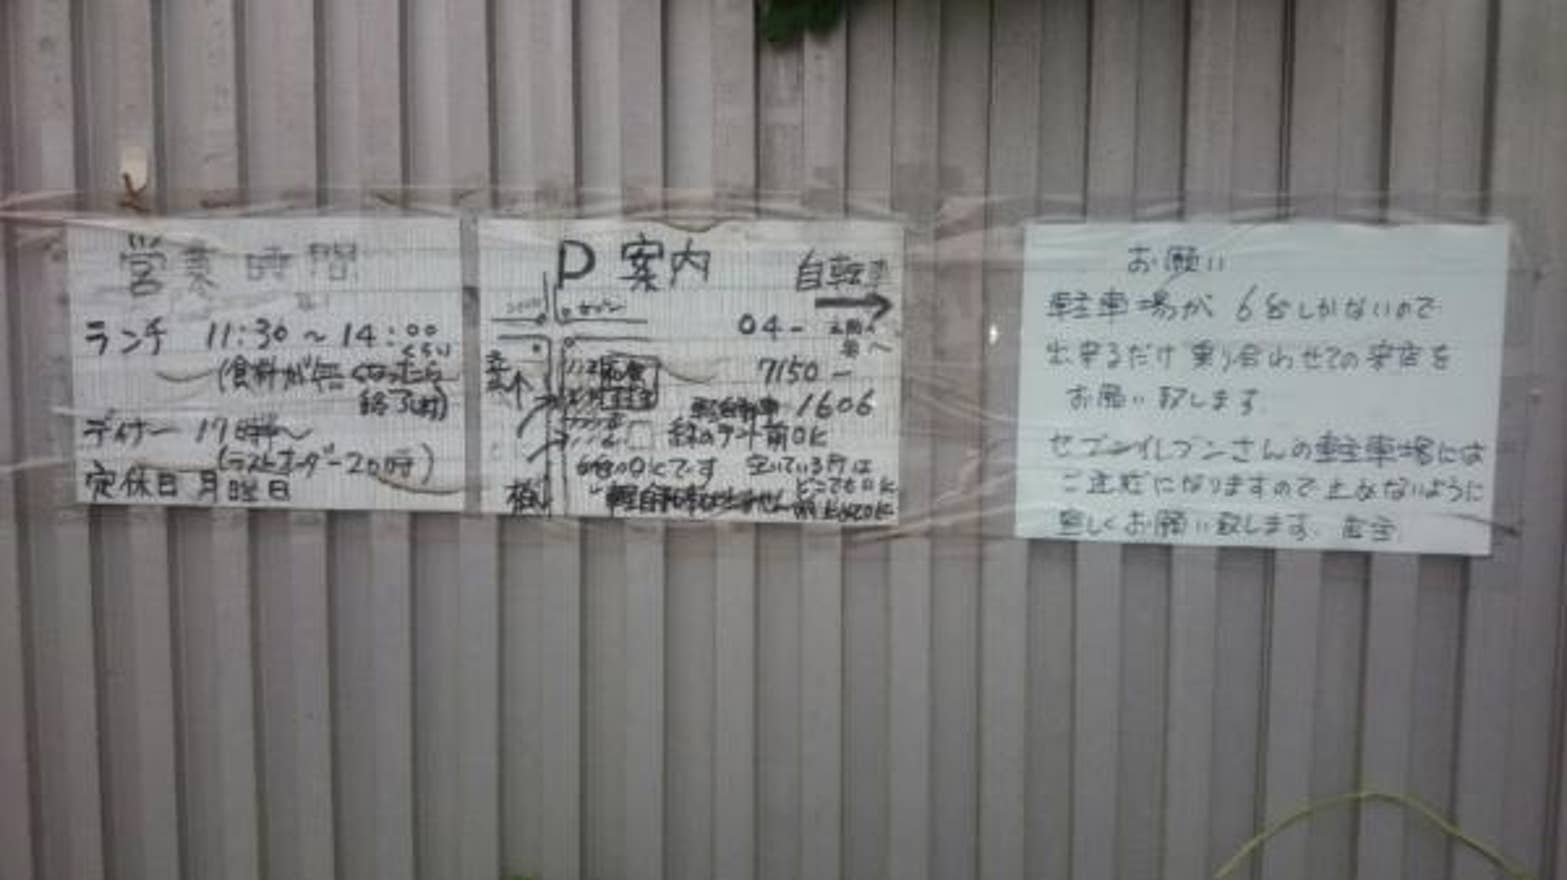 営業時間
ランチ 11:30～14:00
くらい
(食料が無くなったら
終了します)
ディナー 17時～
(ラストオーダー20時)
定休日 月曜日
P 案内
自転車
→
セブン
04-
7150-
1606
緑のテント前OK
6台OKです 空いている所は
どこでもOK
お願い
駐車場が 6台しかないので
出来るだけ 乗り合わせての来店を
お願い致します
セブンイレブンさんの駐車場には
ご迷惑になりますので止めないように
宜しくお願い致します。店主